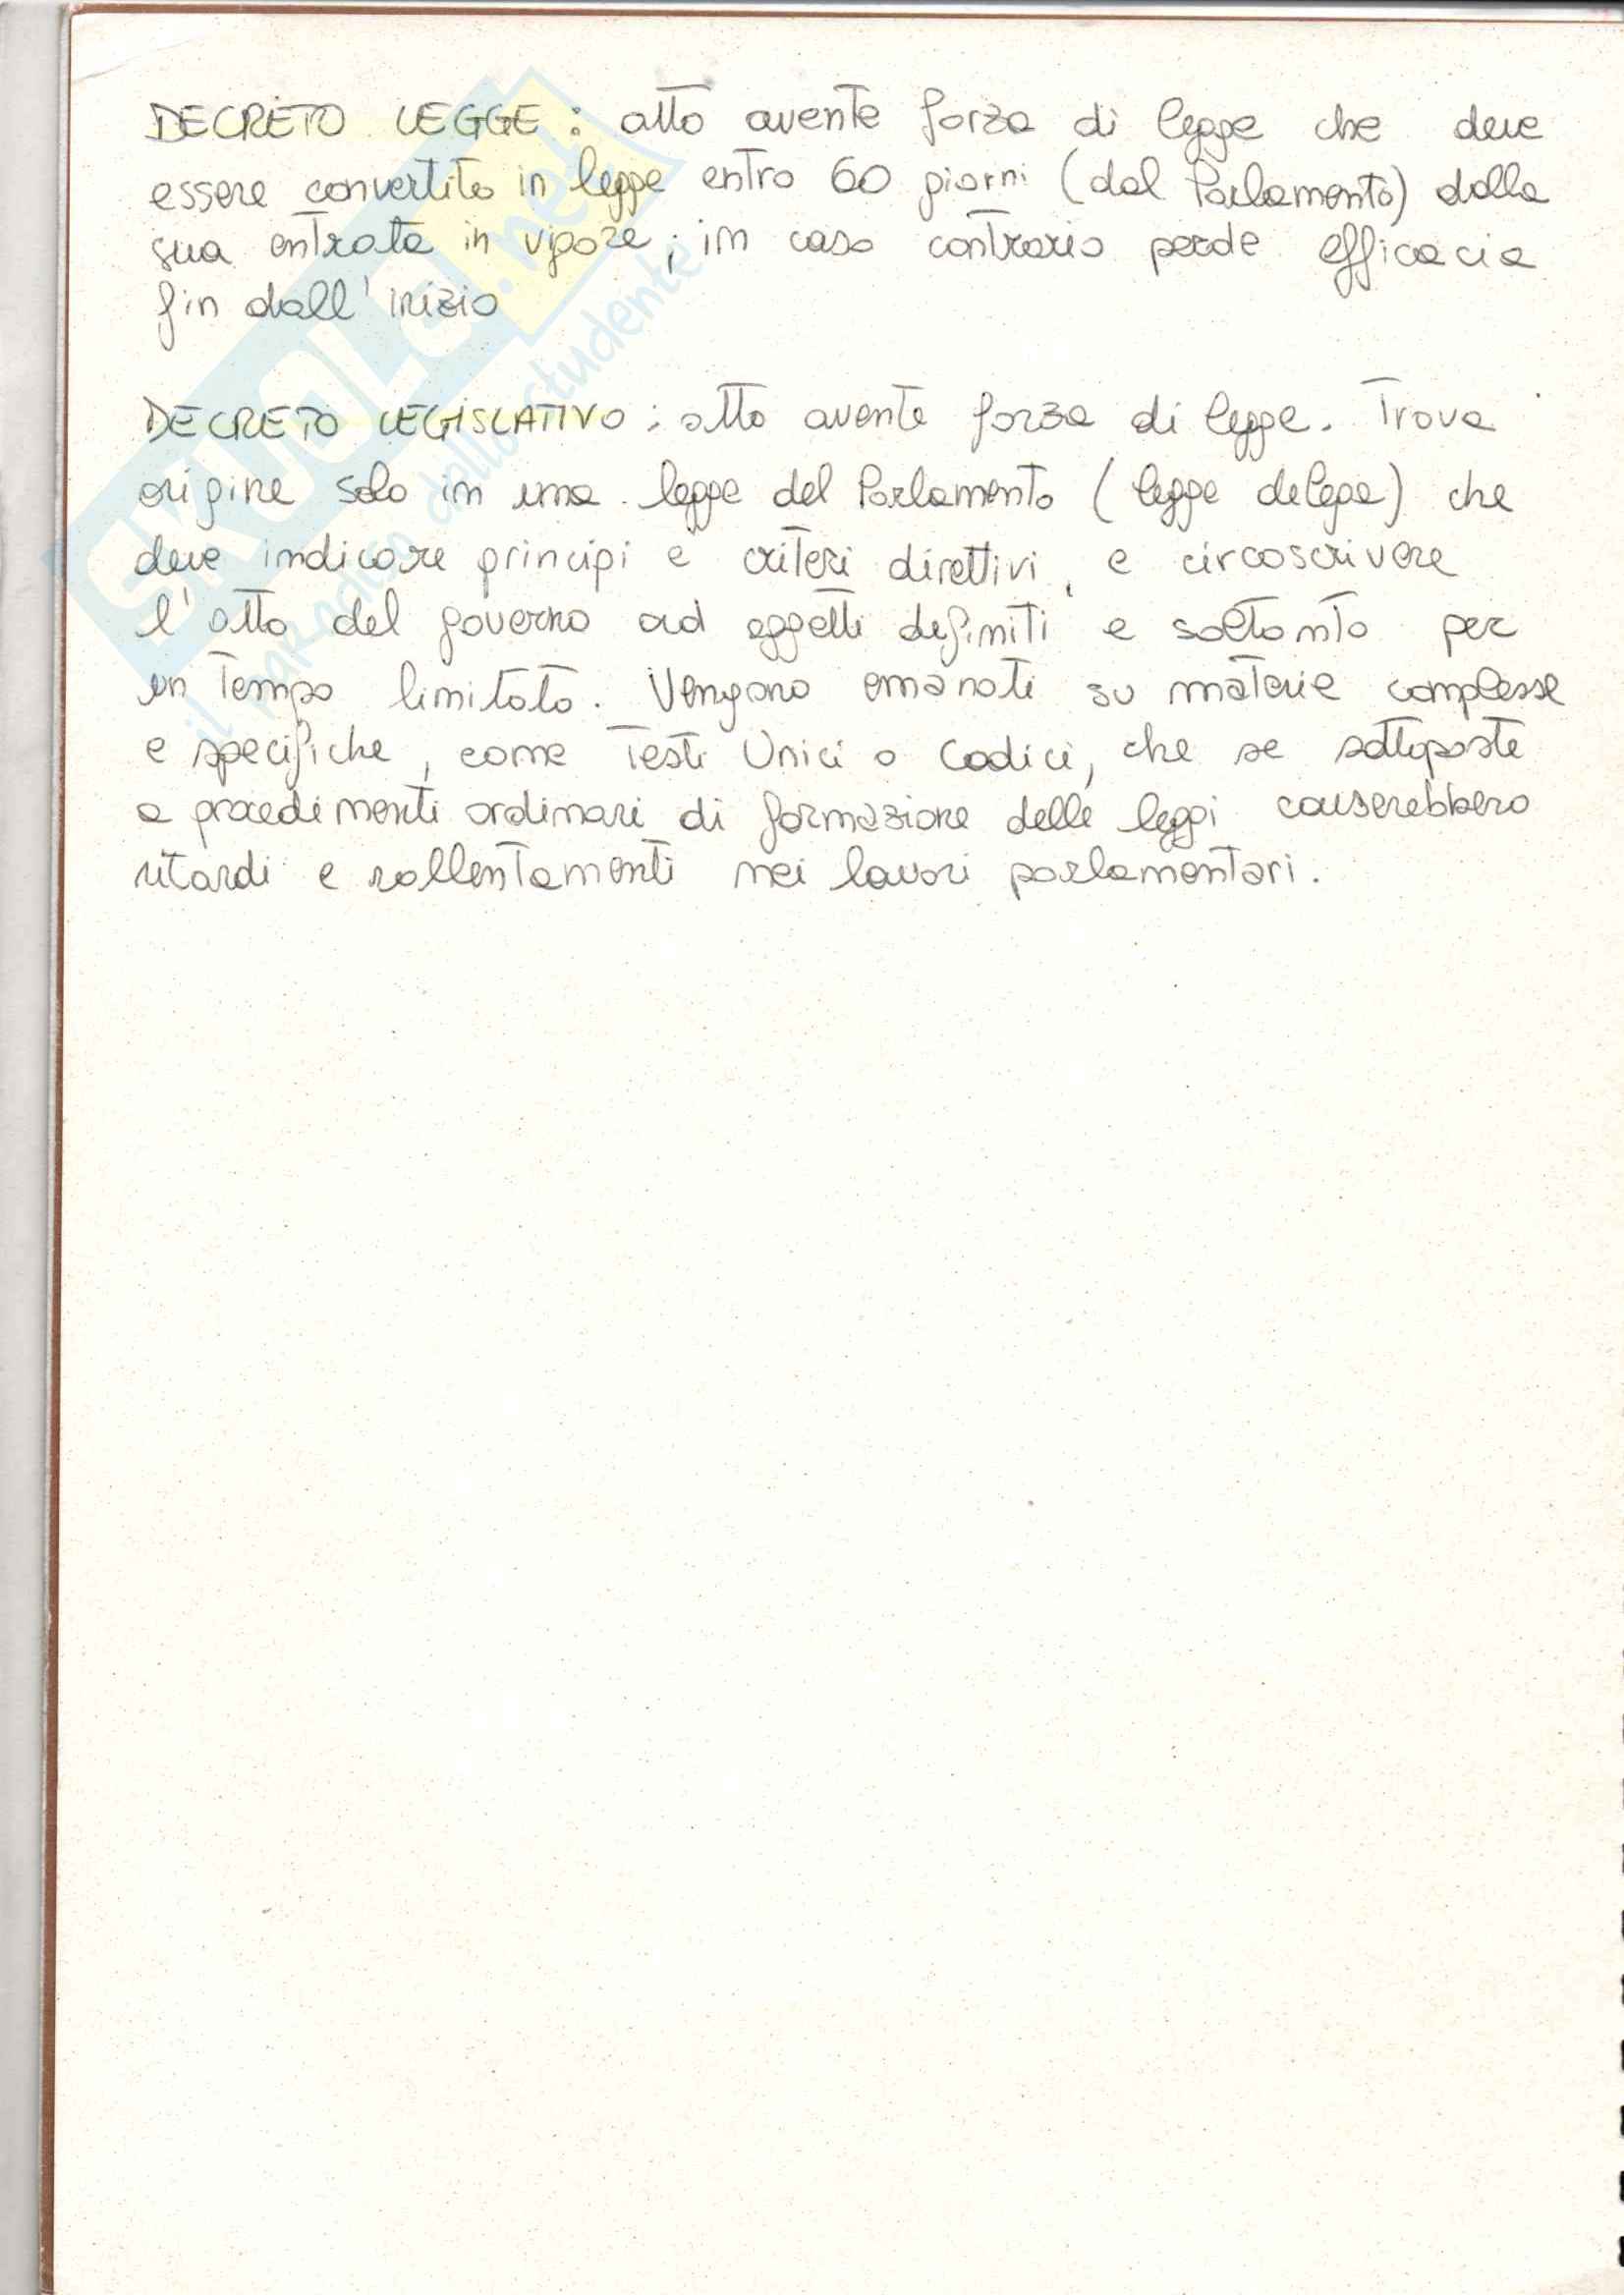 DECRETO LEGGE : atto avente forza di legge che deve
essere convertito in legge entro 60 giorni (dal Parlamento) dalla
sua entrata in vigore; in caso contrario perde efficacia
fin dall'inizio
DECRETO LEGISLATIVO : atto avente forza di legge. Trova
origine solo in una legge del Parlamento (legge delega) che
deve indicare principi e criteri direttivi, e circoscrivere
l'atto del governo ad oggetti definiti e soltanto per
un tempo limitato. Vengono emanati su materie complesse
e specifiche, come Testi Unici o Codici, che se sottoposte
a procedimenti ordinari di formazione delle leggi causerebbero
ritardi e rallentamenti nei lavori parlamentari.
SKUOLA.net
il paradiso dello studente